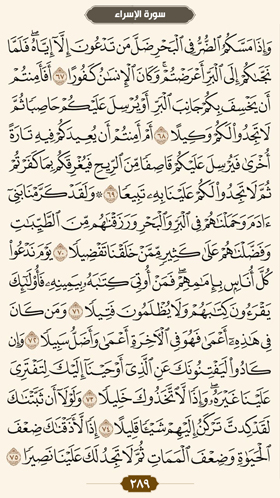 سورة الإسراء
وَإِذَا مَسَّكُمُ ٱلضُّرُّ فِى ٱلْبَحْرِ ضَلَّ مَن تَدْعُونَ إِلَّآ إِيَّاهُ ۖ فَلَمَّا
نَجَّىٰكُمْ إِلَى ٱلْبَرِّ أَعْرَضْتُمْ ۚ وَكَانَ ٱلْإِنسَٰنُ كَفُورًا ٦٧ أَفَأَمِنتُمْ
أَن يَخْسِفَ بِكُمْ جَانِبَ ٱلْبَرِّ أَوْ يُرْسِلَ عَلَيْكُمْ حَاصِبًا ثُمَّ
لَا تَجِدُوا۟ لَكُمْ وَكِيلًا ٦٨ أَمْ أَمِنتُمْ أَن يُعِيدَكُمْ فِيهِ تَارَةً
أُخْرَىٰ فَيُرْسِلَ عَلَيْكُمْ قَاصِفًا مِّنَ ٱلرِّيحِ فَيُغْرِقَكُم بِمَا كَفَرْتُمْ ۙ
ثُمَّ لَا تَجِدُوا۟ لَكُمْ عَلَيْنَا بِهِۦ تَبِيعًا ٦٩ ۞ وَلَقَدْ كَرَّمْنَا بَنِىٓ
ءَادَمَ وَحَمَلْنَٰهُمْ فِى ٱلْبَرِّ وَٱلْبَحْرِ وَرَزَقْنَٰهُم مِّنَ ٱلطَّيِّبَٰتِ
وَفَضَّلْنَٰهُمْ عَلَىٰ كَثِيرٍ مِّمَّنْ خَلَقْنَا تَفْضِيلًا ٧٠ يَوْمَ نَدْعُوا۟
كُلَّ أُنَاسٍۭ بِإِمَٰمِهِمْ ۖ فَمَنْ أُوتِىَ كِتَٰبَهُۥ بِيَمِينِهِۦ فَأُو۟لَٰٓئِكَ
يَقْرَءُونَ كِتَٰبَهُمْ وَلَا يُظْلَمُونَ فَتِيلًا ٧١ وَمَن كَانَ
فِى هَٰذِهِۦٓ أَعْمَىٰ فَهُوَ فِى ٱلْءَاخِرَةِ أَعْمَىٰ وَأَضَلُّ سَبِيلًا ٧٢ وَإِن
كَادُوا۟ لَيَفْتِنُونَكَ عَنِ ٱلَّذِىٓ أَوْحَيْنَآ إِلَيْكَ لِتَفْتَرِىَ
عَلَيْنَا غَيْرَهُۥ ۖ وَإِذًا لَّٱتَّخَذُوكَ خَلِيلًا ٧٣ وَلَوْلَآ أَن ثَبَّتْنَٰكَ
لَقَدْ كِدتَّ تَرْكَنُ إِلَيْهِمْ شَيْـًٔا قَلِيلًا ٧٤ إِذًا لَّأَذَقْنَٰكَ ضِعْفَ
ٱلْحَيَوٰةِ وَضِعْفَ ٱلْمَمَاتِ ثُمَّ لَا تَجِدُ لَكَ عَلَيْنَا نَصِيرًا ٧٥
٢٨٩